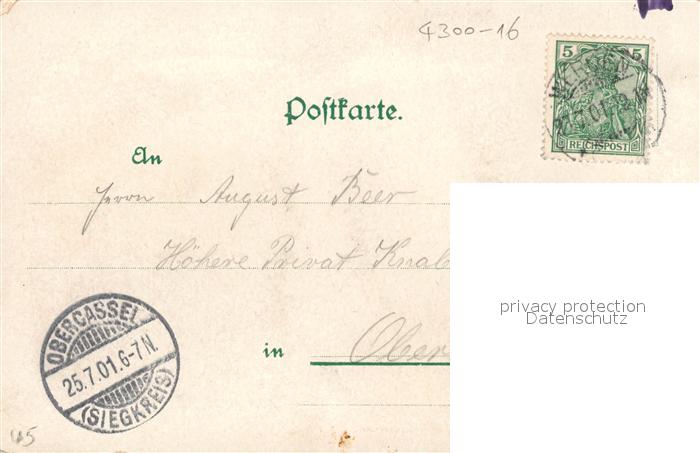 4300-16
5 5
REICHSPOST
Postkarte.
An
Herrn August Beer
Höhere Privat Knab
in Ober
OBERCASSEL
25.7.01.6-7N.
(SIEGKREIS)
privacy protection
Datenschutz